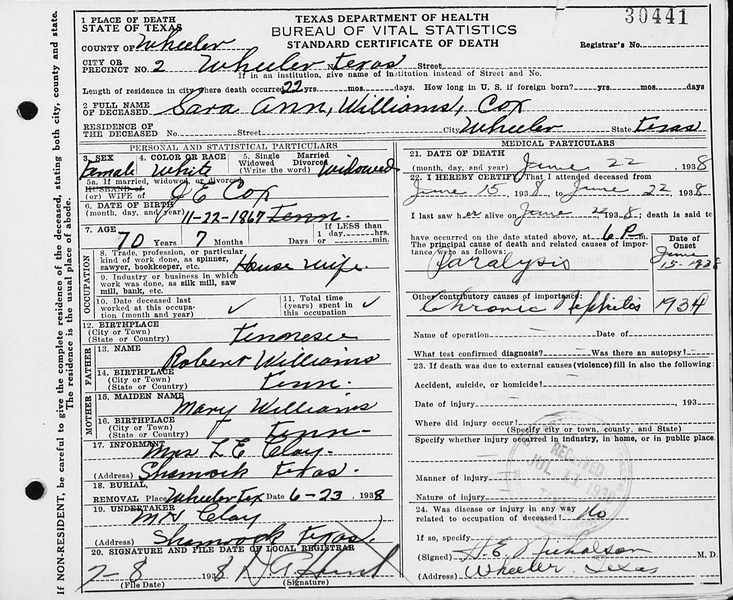 TEXAS DEPARTMENT OF HEALTH
BUREAU OF VITAL STATISTICS
STANDARD CERTIFICATE OF DEATH
30441
Registrar's No.
If NON-RESIDENT, be careful to give the complete residence of the deceased, stating both city, county and state.
The residence is the usual place of abode.
1 PLACE OF DEATH
STATE OF TEXAS
COUNTY OF Wheeler
CITY OR
PRECINCT NO. 2 Wheeler No. Texas Street
If in an institution, give name of institution instead of Street and No.
Length of residence in city where death occurred 22 yrs. mos. days. How long in U. S. if foreign born? yrs. mos. days
2 FULL NAME
OF DECEASED Sara Ann, Williams, Cox
RESIDENCE OF
THE DECEASED No. Street City Wheeler State Texas
PERSONAL AND STATISTICAL PARTICULARS
3. SEX Female
4. COLOR OR RACE White
5. Single Married Widowed Divorced (Write the word) Widowed
5a. If married, widowed, or divorced
HUSBAND of
(or) WIFE of J E Cox
6. DATE OF BIRTH
(month, day, and year) 11-22-1867 Tenn.
7. AGE 70 Years 7 Months Days If LESS than 1 day, hrs. or min.
OCCUPATION
8. Trade, profession, or particular
kind of work done, as spinner,
sawyer, bookkeeper, etc. House wife.
9. Industry or business in which
work was done, as silk mill, saw
mill, bank, etc.
10. Date deceased last
worked at this occupation
(month and year) ✓
11. Total time
(years) spent in
this occupation ✓
12. BIRTHPLACE
(City or Town)
(State or Country) Tennessee
FATHER
13. NAME Robert Williams
14. BIRTHPLACE
(City or Town)
(State or Country) Tenn.
MOTHER
15. MAIDEN NAME Mary Williams
16. BIRTHPLACE
(City or Town)
(State or Country) Tenn
17. INFORMENT Mrs L E Clay.
(Address) Shamrock Texas.
18. BURIAL,
REMOVAL Place Wheeler Tex Date 6-23 1938
19. UNDERTAKER M H Clay
(Address) Shamrock Texas.
20. SIGNATURE AND FILE DATE OF LOCAL REGISTRAR
7-8 1938
(File Date) (Signature)
MEDICAL PARTICULARS
21. DATE OF DEATH
(month, day, and year) June 22 1938
22. I HEREBY CERTIFY That I attended deceased from
June 15 1938 to June 22 1938
I last saw her alive on June 22 1938; death is said to
have occurred on the date stated above at 6 P m.
The principal cause of death and related causes of importance were as follows:
Date of Onset
Paralysis June 15-1938
Other contributory causes of importance:
Chronic Nephritis 1934
Name of operation Date of
What test confirmed diagnosis? Was there an autopsy?
23. If death was due to external causes (violence) fill in also the following:
Accident, suicide, or homicide?
Date of injury 193
Where did injury occur?
(Specify city or town, county, and State)
Specify whether injury occurred in industry, in home, or in public place
Manner of injury
Nature of injury
RECEIVED
24. Was disease or injury in any way
related to occupation of deceased? No
If so, specify
(Signed) H. E. Nicholson M. D.
(Address) Wheeler, Texas